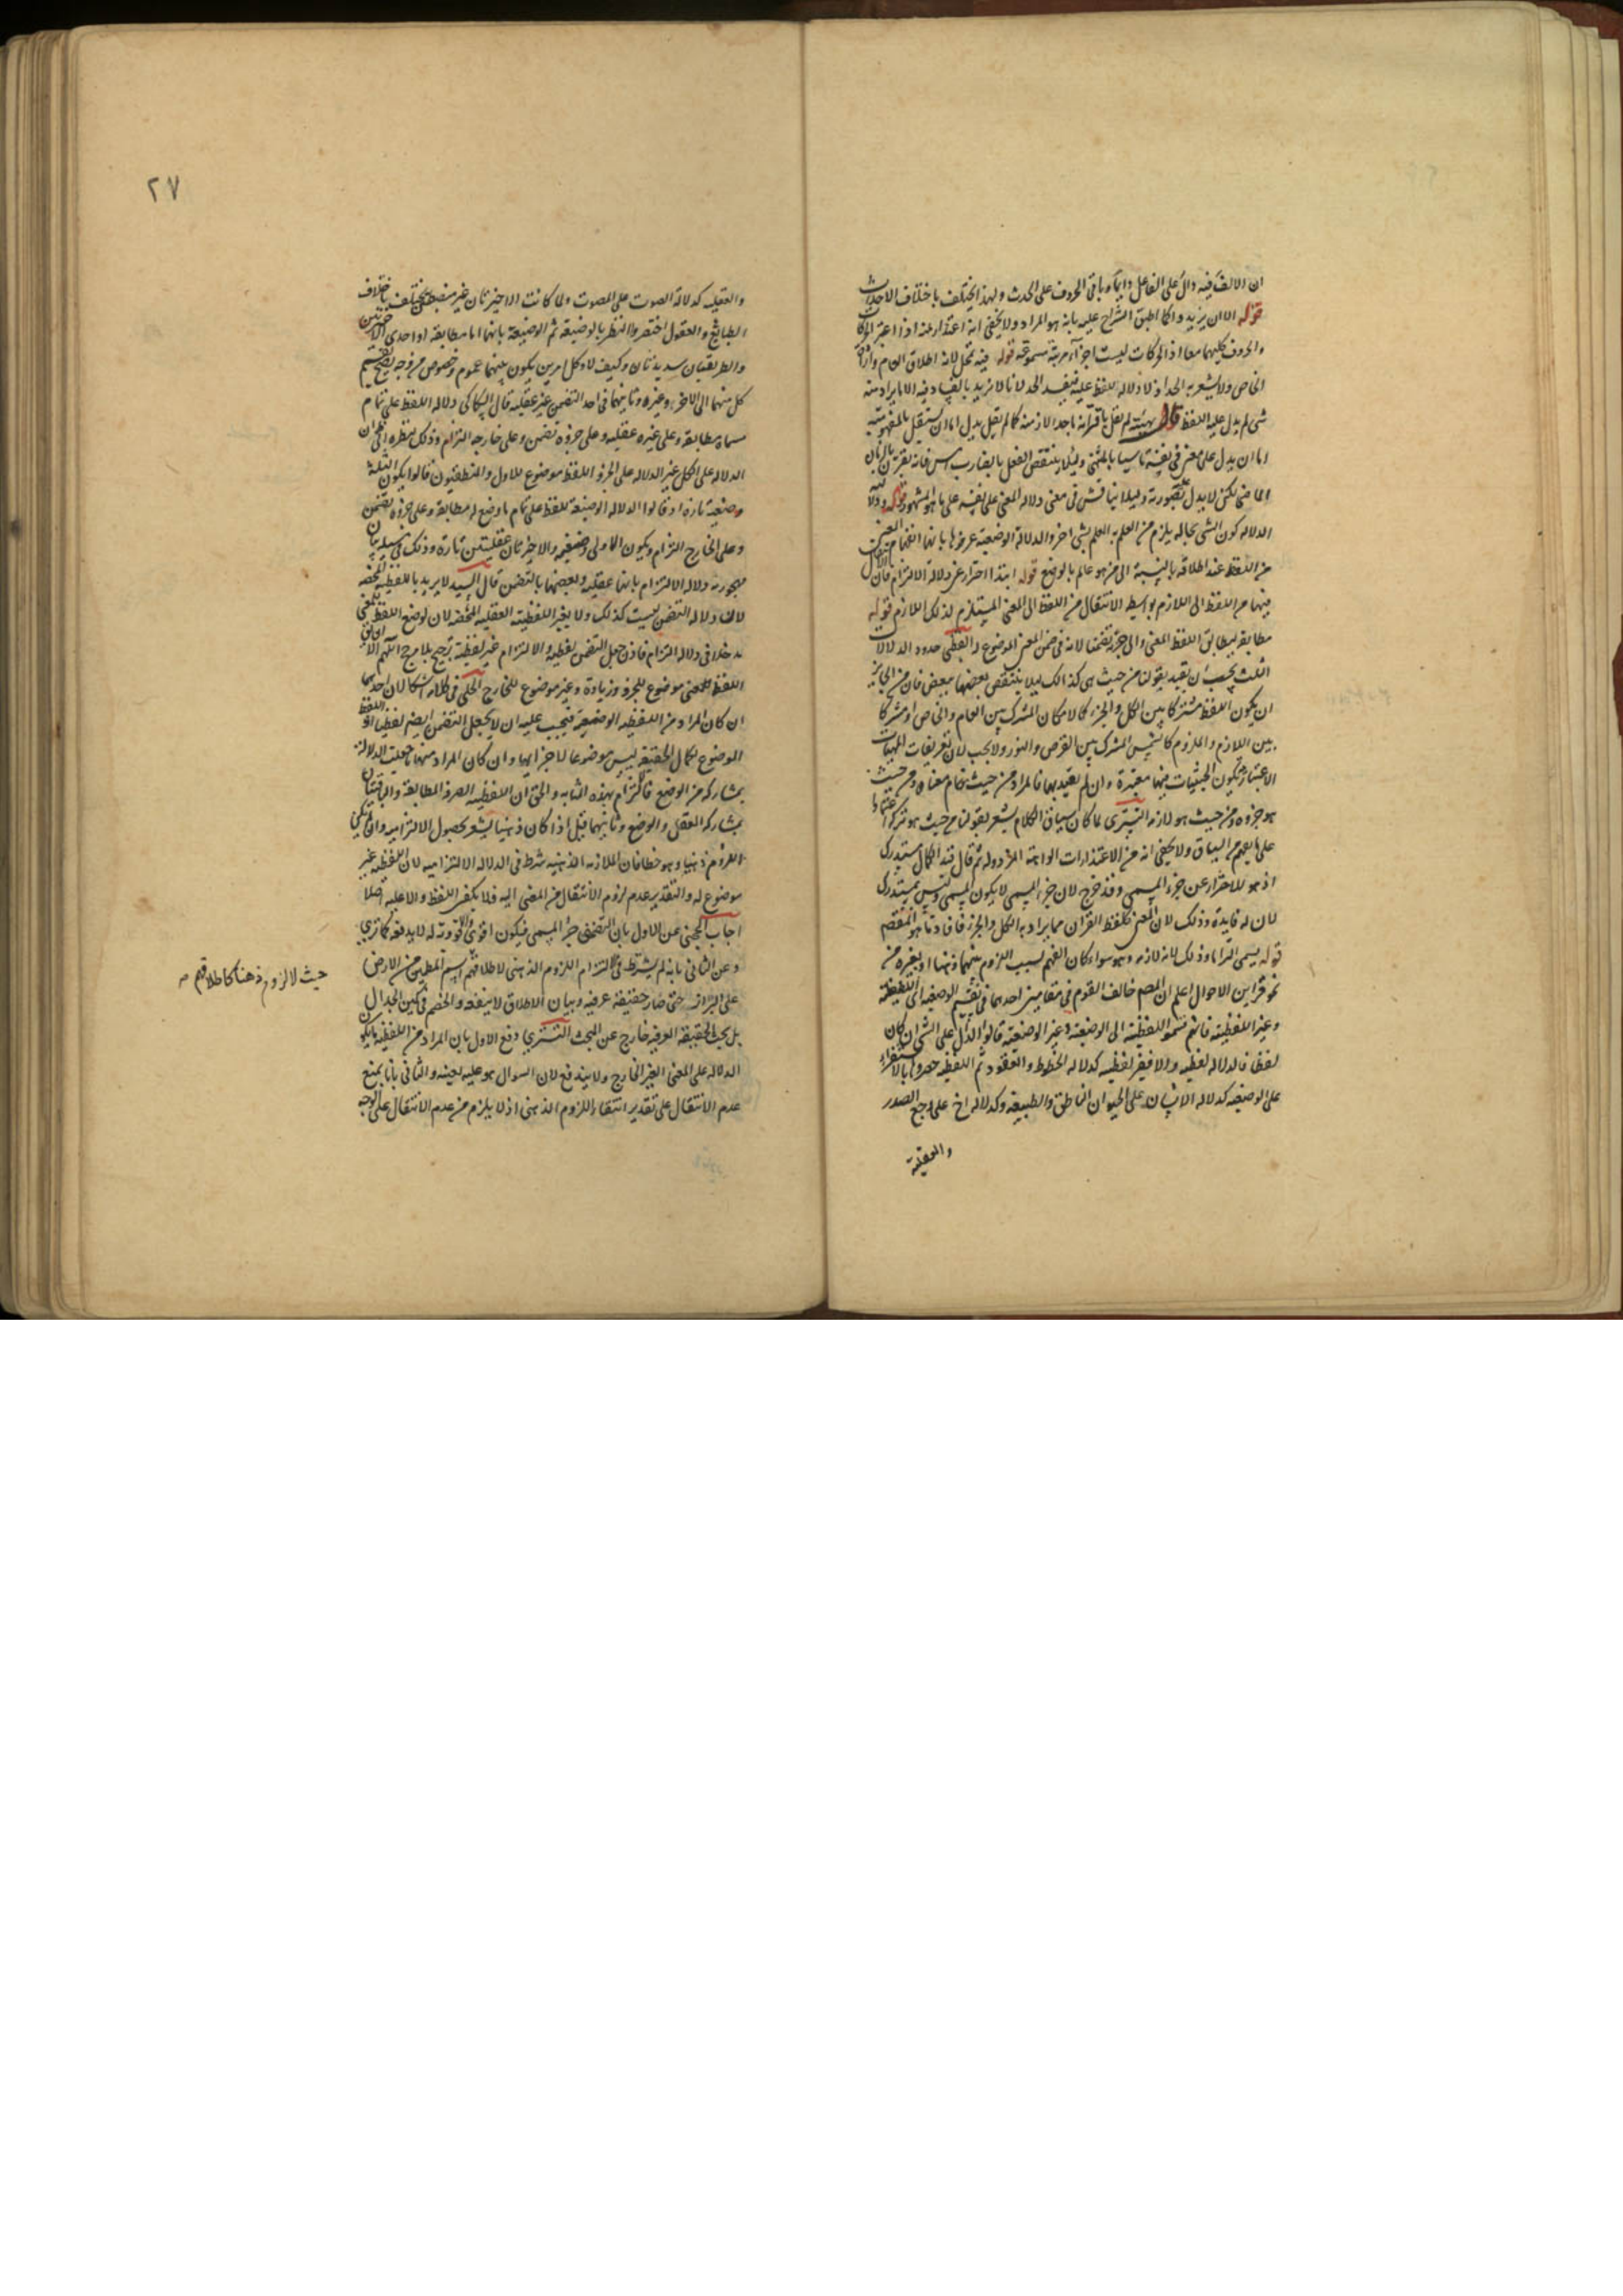 ان الالف فيه دال على الفاعل دايما وباقى الحروف على الحدث ولهذا يختلف باختلاف الاحداث
قوله الا ان يزيد وا كما اطبق الشراح عليه بانه هو المراد ولا يخفى انه اعتذار لمنه اذ اعتبر الحركات
والحروف كليهما معا اذ الحركات ليست اجزآء مرتبة مسموعة قوله فيه تمحل لانه اطلاق العام وارادة
الخاص ولا يشعر به الحد اذ لا دلالة للفظ عليه فيفسد الحد لانا لا نريد بالفساد فيه الا ما يراد منه
شى لم يدل عليه اللفظ قال بهيئته لم نقل باقترانه باحد الازمنة كما لم يقل يدل اما ان يستقل بالمفهومية
اما ان يدل على معنى فى نفسه تاسيا بالمتن وليلا ينتقض الفعل بالضارب امس فانه يقترن بالزمان
الماضى لكن لا يدل بصورته وليلا يناقش فى معنى دلالة المعنى على نفسه على ما هو المشهور قوله ودلالته
الدلالة كون الشى بحالة يلزم من العلم به العلم بشى اخر والدلالة الوضعية عرفوها بانها انفهام المعنى
من اللفظ عند اطلاقه بالنسبة الى من هو عالم بالوضع قوله ابتدا احتراز عن دلالة الالتزام فان الانتقال
فيها من اللفظ الى اللازم بواسطة الانتقال من اللفظ الى المعنى المستلزم لذلك اللازم قوله
مطابقة لتطابق اللفظ المعنى والى جزئه تضمنا لانه فى ضمن المعنى الموضوع له القطبى حدود الدلالات
الثلث يجب ان يقيد بقولنا من حيث هى كذالك ليلا ينتقض بعضها ببعض فان من الجائز
ان يكون اللفظ مشتركا بين الكل والجزء كالامكان المشترك بين العام والخاص او مشتركا
بين اللازم والملزوم كالشمس المشترك بين القرص والنور ولا يجب لان تعريفات المهيات
الاعتبارية يكون الحيثيات فيها معتبرة وان لم يقيد بها فالمراد من حيث تمام معناه ومن حيث
هو جزوه ومن حيث هو لازمه التسترى لما كان سياق الكلام يشعر بقولنا من حيث هو تركه اعتمادا
على ما يفهم من السياق ولا يخفى انه من الاعتذارات الواهية المزدولة ثم قال قيد الكمال مستدرك
اذ هو للاحتراز عن جزء المسمى وقد خرج لان جزء المسمى لا يكون المسمى وليس بمستدرك
لان له فايدة وذلك لان المعنى كلفظ القران مما يراد به الكل والجزء فافادتها هو المقصم
قوله يسمى التزاما وذلك لانه لازمه وهو سواء كان الفهم لسبب اللزوم بينهما ذهنا او بغيره من
نحو قراين الاحوال اعلم ان المصم خالف القوم فى مقامين احدهما فى تقسيم الوضعية الى اللفظية
وغير اللفظية فانهم قسموا اللفظية الى الوضعية وغير الوضعية قالوا الدال على الشى ان كان
لفظا فالدلالة لفظية والا فغير لفظية كدلالة الخطوط والعقود ثم اللفظية حصروها بالاستقراء
على الوضعية كدلالة الانسان على الحيوان الناطق والطبيعية وكدلالة اخ على وجع الصدر
والعقلية
٢٧
والعقلية كدلالة الصوت على المصوت ولما كانت الاخيرتان غير منضبطة يختلف باختلاف
الطبايع والعقول اختصروا النظر بالوضعية ثم الوضعية بانها اما مطابقة او احدى الاخريين
والطريقتان سديدتان وكيف لا وكل امرين يكون بينهما عموم وخصوص من وجه يصح تقسيم
كل منهما الى الاخر وغيره وثانيهما فى احد التضمن غير عقلية قال السكاكى دلالة اللفظ على تمام
مسماه مطابقة وعلى غيره عقلية وعلى جزوه تضمن وعلى خارجه التزام وذلك نظره الى ان
الدلالة على الكل غير الدلالة على الجزء واللفظ موضوع للاول والمنطقيون قالوا بكون الثلثة
وضعية تارة اذ قالوا الدلالة الوضعية للفظ على تمام ما وضع له مطابقة وعلى جزوه تضمن
وعلى الخارج التزام وبكون الاولى وضعية والاخرتان عقليتين تارة وذلك فى سبيل بيان
مهجورية دلالة الالتزام بانها عقلية ونقضها بالتضمن قال السيد لا يريد باللفظية المحضة
لان دلالة التضمن ليست كذلك ولا بغير اللفظية العقلية المحضة لان لوضع اللفظ للمعنى
مدخلا فى دلالة التزام فاذن جعل التضمن لفظية والالتزام غير لفظية ترجيح بلا مرجح اللهم الا ان يق
اللفظ للمعنى موضوع للجزء وزيادة وغير موضوع للخارج الحلى فى كلامه اشكالان احدهما
ان كان المراد من اللفظية الوضعية فيجب عليه ان لا يجعل التضمن ايضم لفظيا اذ اللفظ
الموضوع لكمال الحقيقة ليس موضوعا لاجزايها وان كان المراد منها ما حصلت الدلالة
بمشاركة من الوضع فالتزام بهذه المثابة والحق ان اللفظية الصرف المطابقة والباقيتان
بمشاركة العقل والوضع وثانيهما قيل اذا كان ذهنيا يشعر بحصول الالتزامية وان لم يكن
اللزوم ذهنيا وهو خطا فان الملازمة الذهنية شرط فى الدلالة الالتزامية لان اللفظ غير
موضوع له والتقدير عدم لزوم الانتقال من المعنى اليه فلا يفهم من اللفظ ولا عليه اصلا
اجاب الخنجى عن الاول بان التضمنى جزء المسمى فيكون اقوى والاقوائية له لا يدفعه كما ترى
وعن الثانى بانه لم يشترط فى الالتزام اللزوم الذهنى لاطلاقهم اسم المطمئن من الارض
حيث لا لزوم ذهنا كاطلاقهم صح
على البراز حتى صار حقيقة عرفية وبيان الاطلاق لا ينفعه والخصم فى كمين الجدال
بل بحث الحقيقة العرفية خارج عن المبحث التسترى دفع الاول بان المراد من اللفظية ما يكون
الدلالة على المعنى الغير الخارج ولا يندفع لان السوال هو عليه بعينه والثانى بانا نمنع
عدم الانتقال على تقدير انتفاء اللزوم الذهنى اذ لا يلزم من عدم الانتقال على الوجه